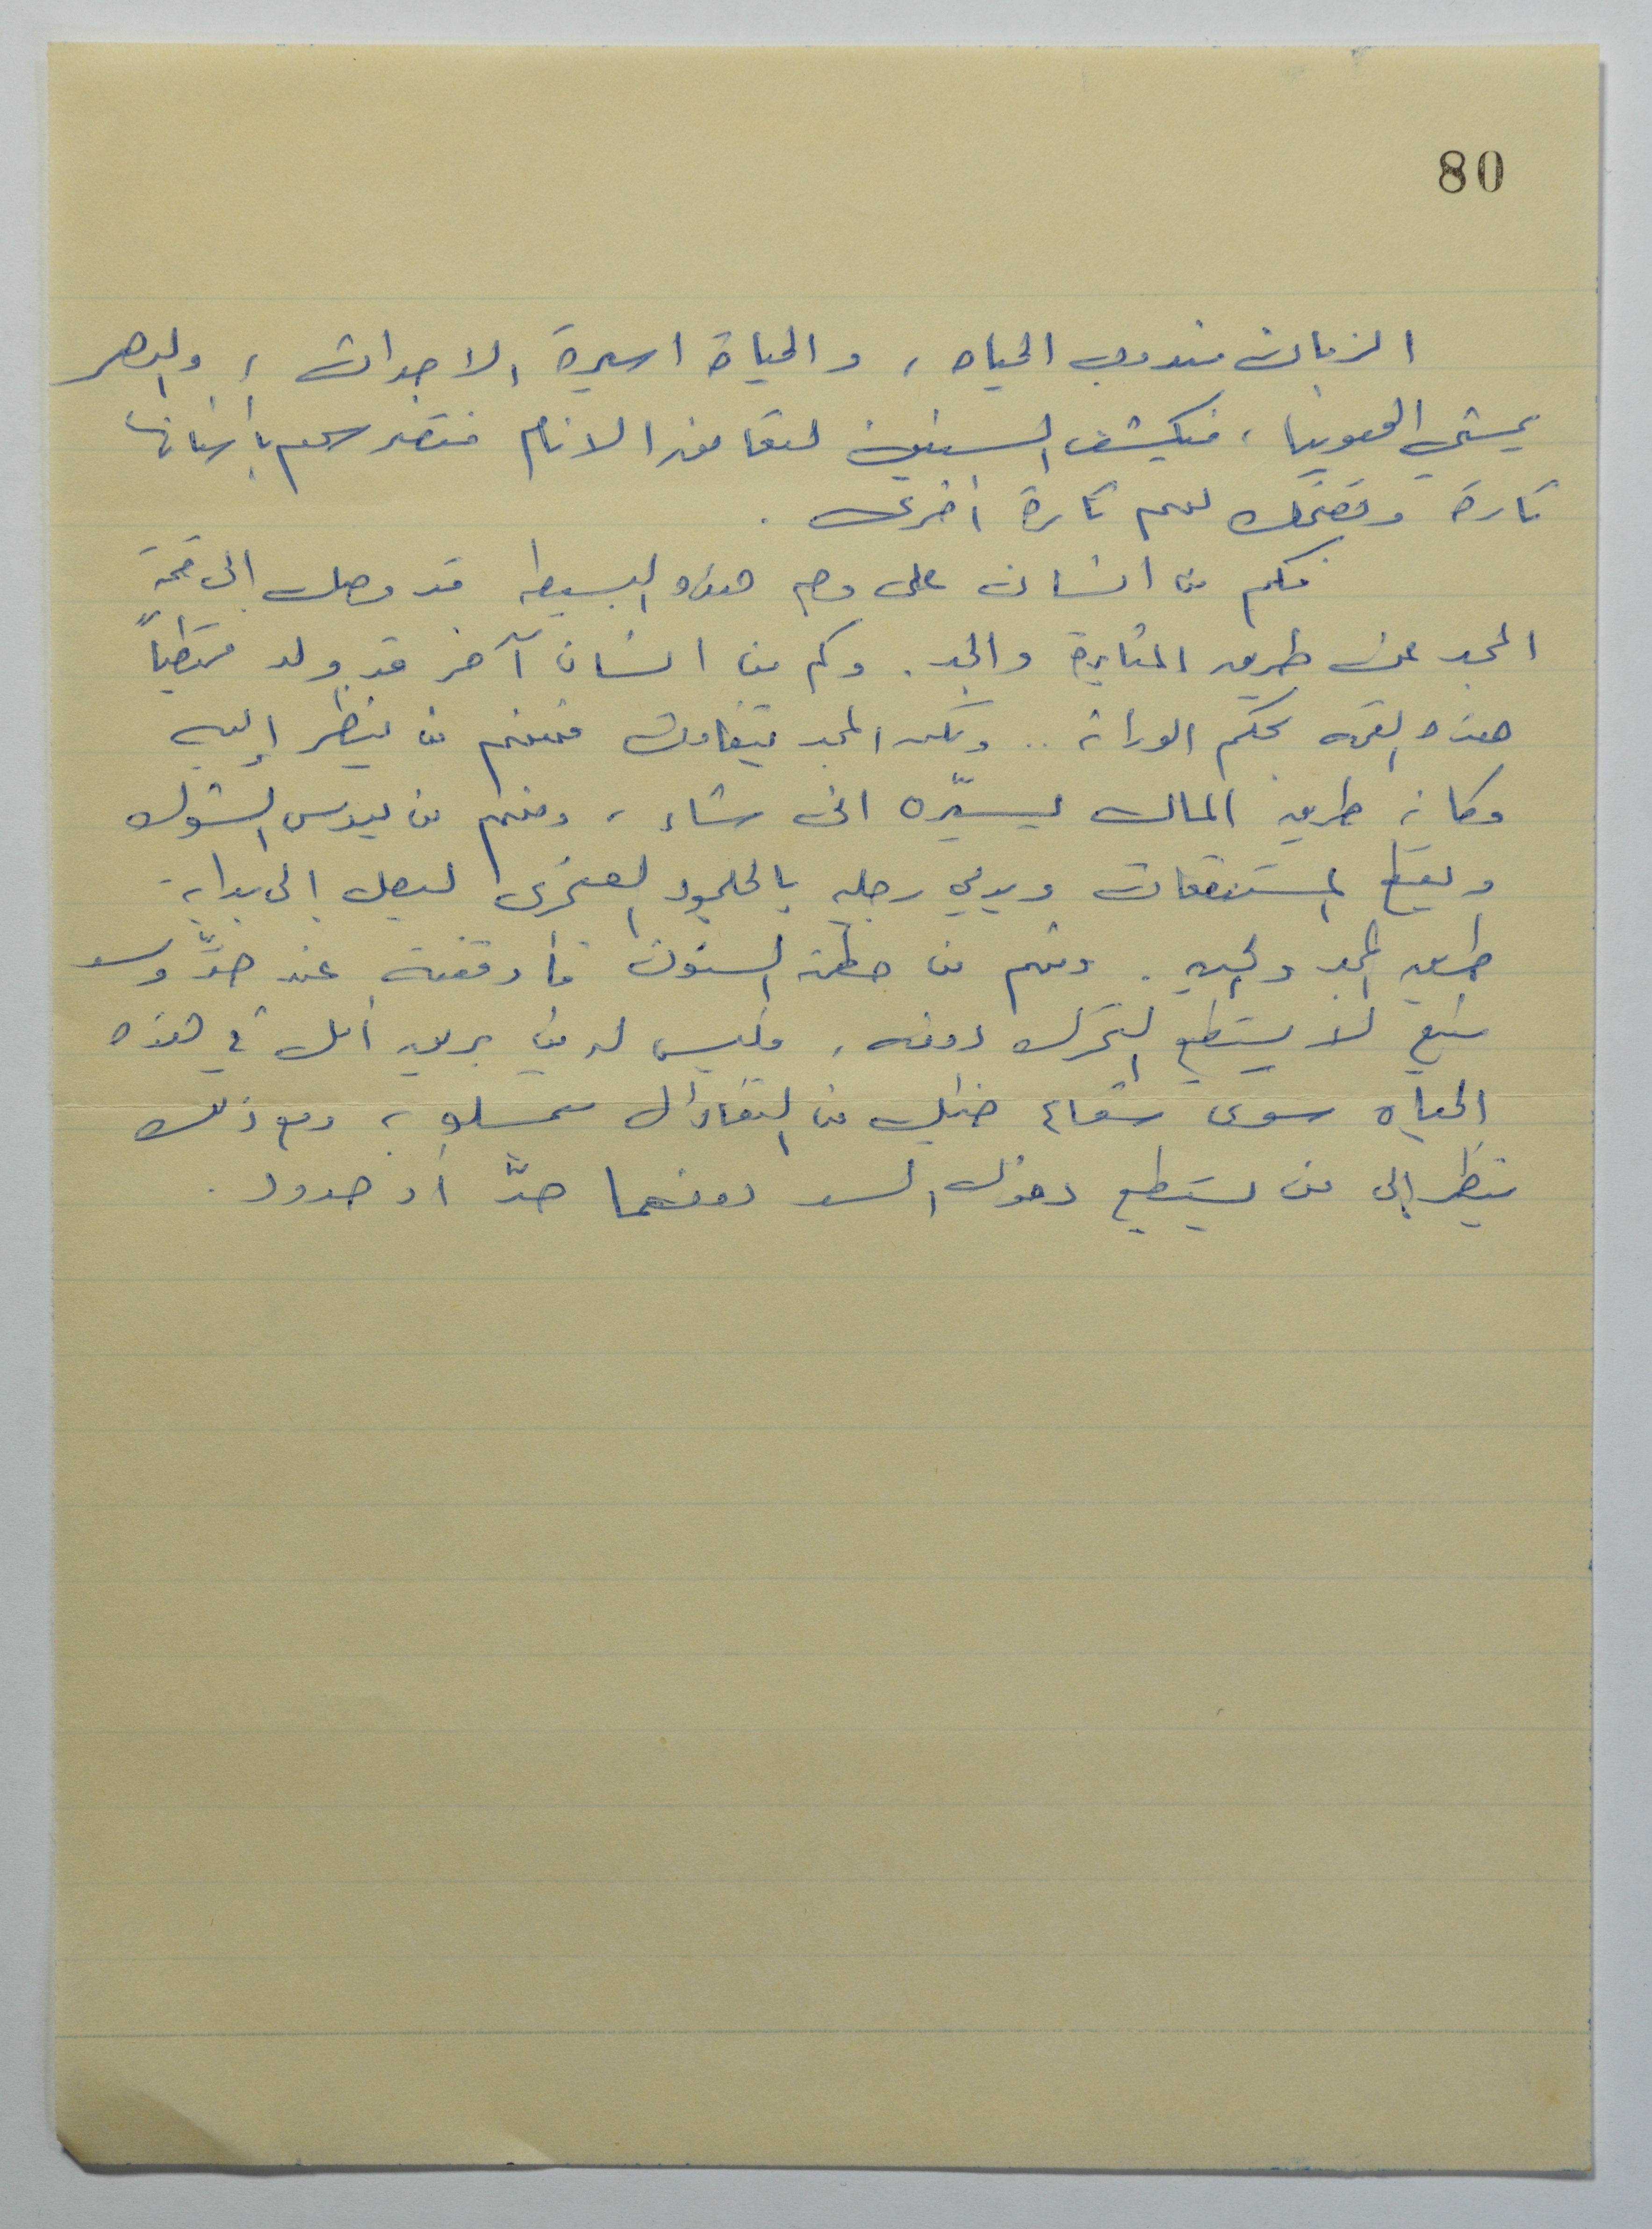 80
الزمان مندوب الحياه ، والحياة اسيرة الاجداث ، والدهر
يمشي الهوينا ، فيكشف السنين لتعا الانام فتضرسهم بأسنانها
تارة وتضحك لهم تارة أخرى .
فكم من انسان على وجه هذه البسيطه قد وصل إلى قمة
المجد عن طريق المثابرة والجد . وكم من انسان آخر قد ولد ممتطياً
هذه القمه بحكم الوراثه .. ولكن المجد يتفاوت فمنهم من ينظر إليه
وكانه طريق المال يسيّره انى شاء ، ومنهم من يدوس الشوك
ويقطع المستنقعات ويدمي رجليه بالجلمود الصخرى ليصل إلى بداية
طريق المجد والحياة . ومنهم من حطمته السنون فأوقفته عند حدٍّ وسد
منيع لا يستطيع التحرك دونه ، وليس لديه من بريق أمل في هذه
الحياه سوى شعاع ضئيل من التفاؤل ، ومع ذلك
ينظر إلى من يستطيع دخول السد دونما حدّ أو حدود .